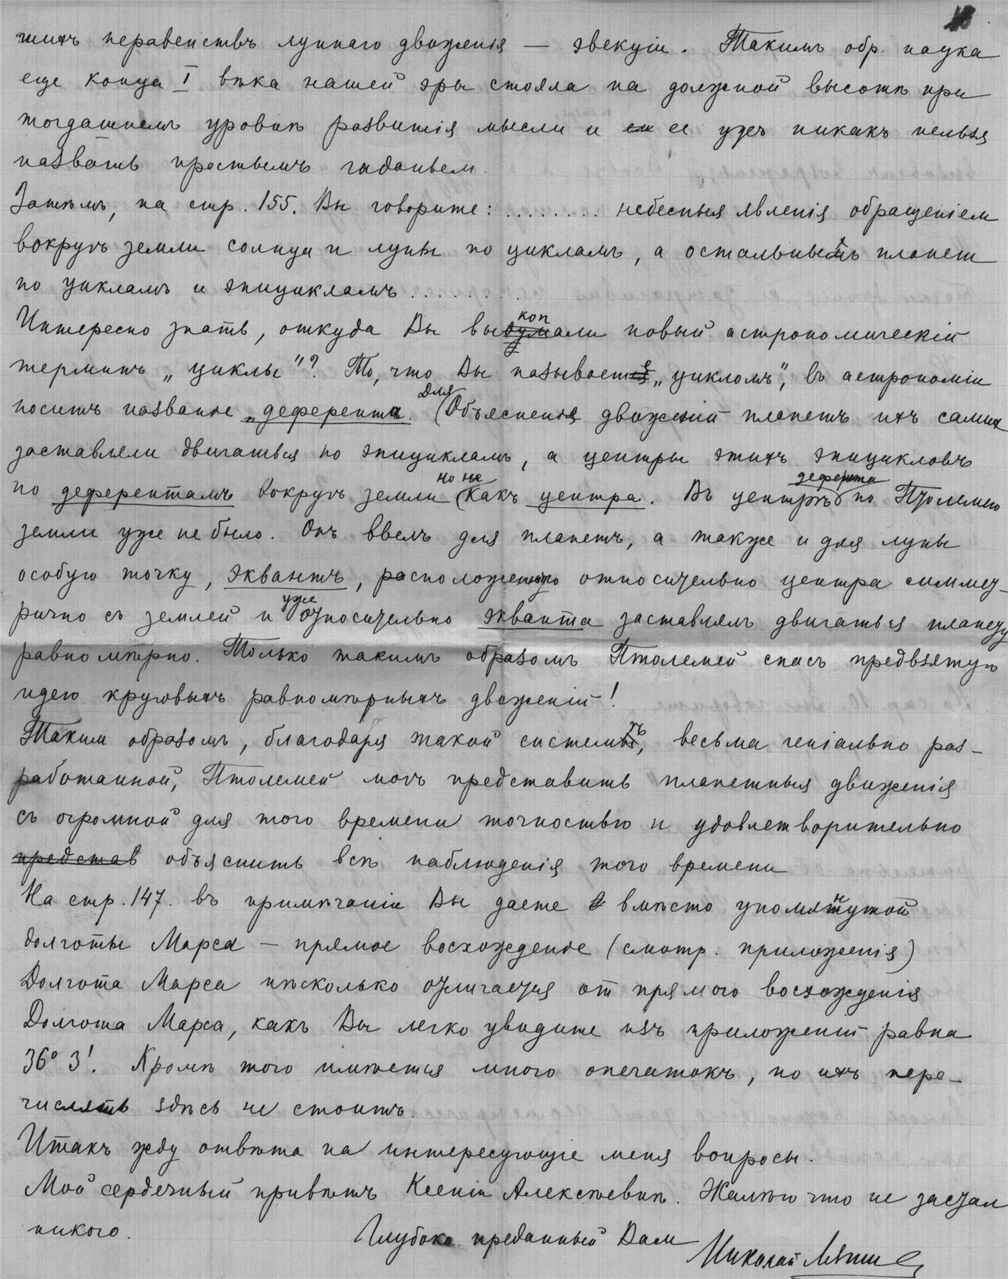 18
шихъ неравенствъ луннаго движенія — эвекціи. Такимъ обр. наука
еще конца I вѣка нашей эры стояла на должной высотѣ при
тогдашнемъ уровнѣ развитія мысли и ее ужъ никакъ нельзя
назвать простымъ гаданьем.
Затѣмъ, на стр. 155. Вы говорите: ........ небесныя явленія обращеніем
вокругъ земли солнца и луны по цикламъ, а остальныхъ планет
по цикламъ и эпицикламъ ........
Интересно знать, откуда Вы выкопали новый астрономическій
терминъ „циклы"? То, что Вы называете „цикломъ", въ астрономіи
носитъ названіе „деферента. Для Объясненія движеній планетъ ихъ самих
заставляли двигаться по эпицикламъ, а центры этихъ эпицикловъ
по деферентамъ вокругъ земли но не какъ центра. Въ центрѣ деферента по Птолемею
земли уже не было. Онъ ввелъ для планетъ, а также и для луны
особую точку, эквантъ, расположенную относительно центра симмет-
рично съ землей и уже относительно экванта заставлям двигаться планету
равномѣрно. Только такимъ образомъ Птолемей спасъ предвзятую
идею круговыхъ равномѣрныхъ движеній!
Таким образомъ, благодаря такой системѣ, весьма геніально раз-
работанной, Птолемей могъ представить планетныя движенія
съ огромной для того времени точностью и удовлетворительно
представ объяснить всѣ наблюденія того времени
На стр. 147. въ примѣчаніи Вы даете вмѣсто упомянутой
долготы Марса — прямое восхожденіе (смотр. приложенія)
Долгота Марса нѣсколько отличается от прямого восхожденія
Долгота Марса, какъ Вы легко увидите изъ приложеній равна
36° 3'. Кромѣ того имѣется много опечатокъ, но ихъ пере-
числять здѣсь не стоитъ.
Итакъ жду отвѣта на интересующіе меня вопросы.
Мой сердечный привѣтъ Ксеніи Алексѣевнѣ. Жалѣю что не застал
никого.
Глубоко преданный Вам
Николай